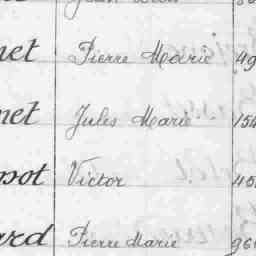 net Pierre Marie 49
net Jules Marie 154
pot Victor 45
ard Pierre Marie 96